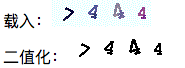 载入： > 4 4 4
二值化： > 4 4 4